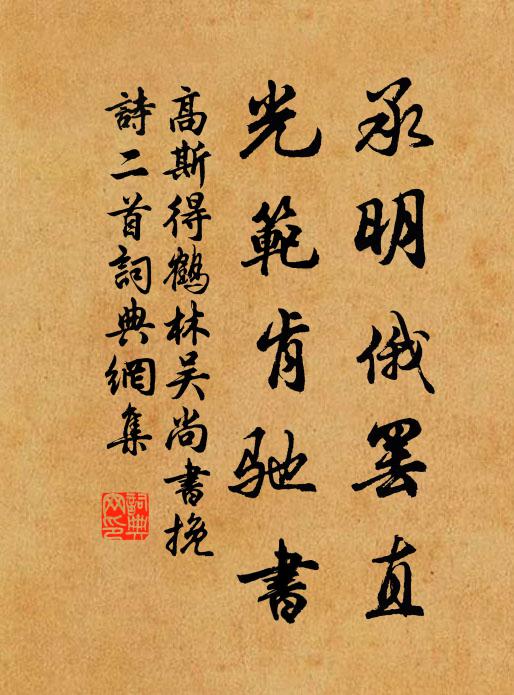 承明俄罢直
光範肯驰書
高斯得鶴林吴尚書挽
詩二首詞典網集